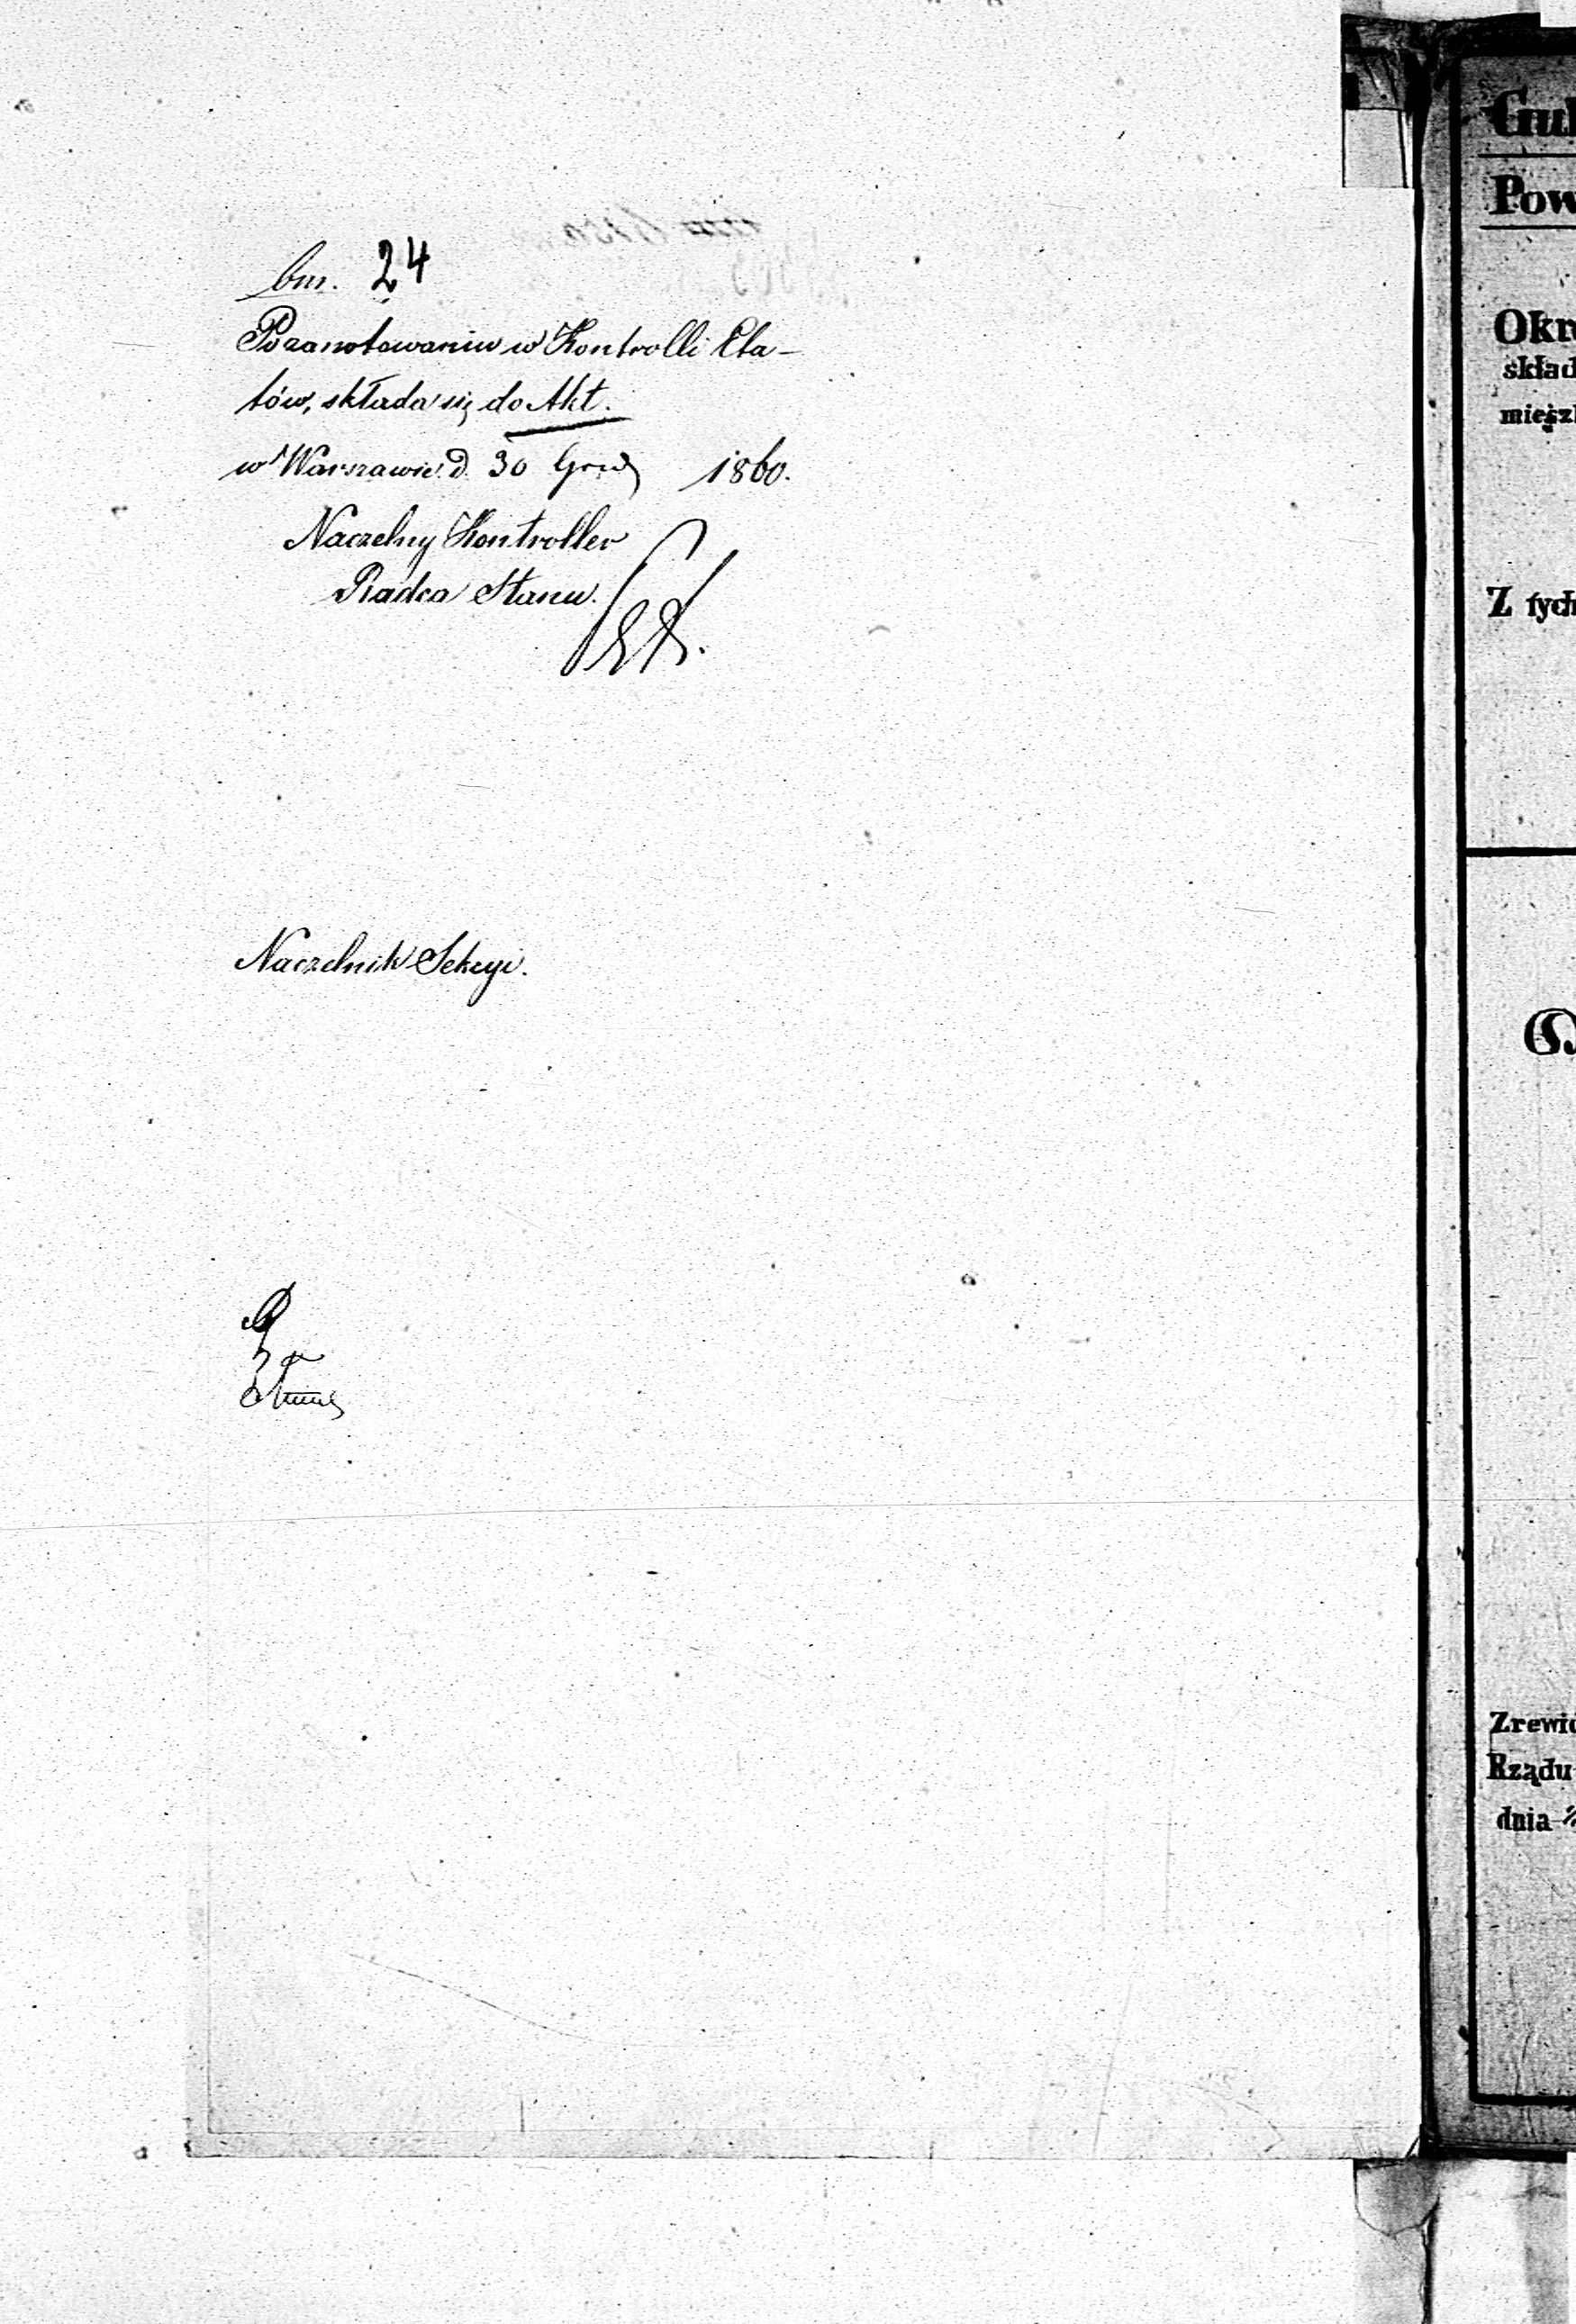 bm. 24
Pozanotowaniu w Kontrolli Eta-
tów, składa się do Akt.
w Warszawie d. 30 Grud 1860.
Naczelny Kontroller
Radca Stanu.
Naczelnik Sekcyi.
Pow
Okr
skład
mieszk
Z tych
Zrewid
Rządu
dnia